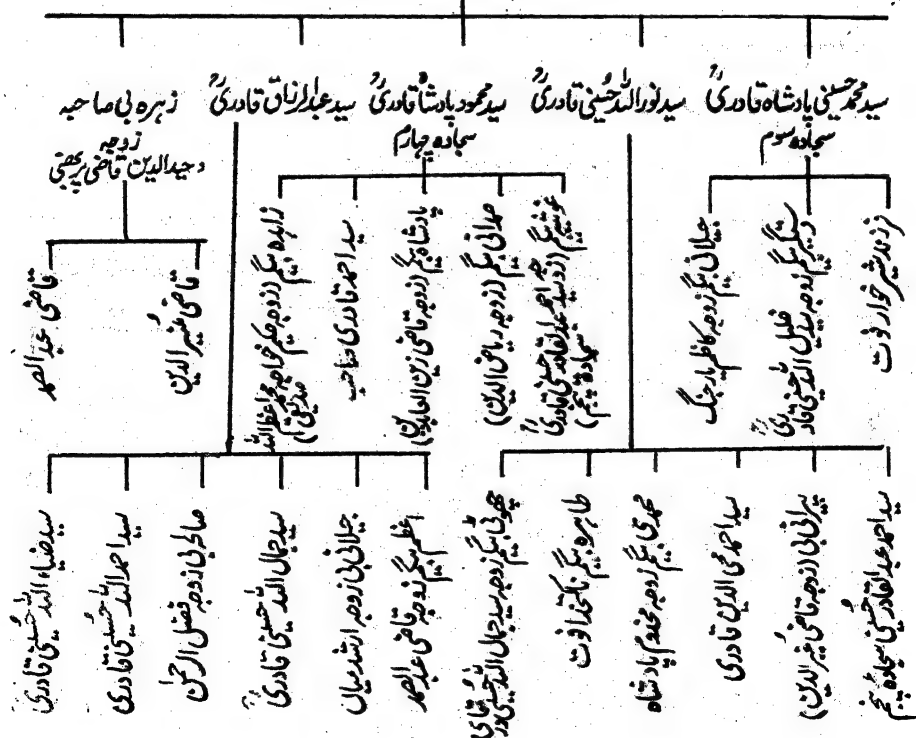 سید محمد حسینی پادشاہ قادریؒ
سجادہ سوم
سید نور اللہ حسینی قادریؒ
سید محمود پادشاہ قادریؒ
سجادہ چہارم
سید عبدالرزاق قادریؒ
زہرہ بی صاحبہ
زوجہ
وحیدالدین قاضی پربھنی
فرزند شیر خوار فوت
دستگیر بیگم زوجہ سید خلیل اللہ حسینی قادریؒ
جیلانی بیگم زوجہ کاظم یار جنگ
غوثیہ بیگم (زوجہ سید احمد عبدالقادر حسینی قادریؒ
سجادہ پنجم)
صمدانی بیگم (زوجہ ریاض الدین)
پادشاہ بیگم (زوجہ قاضی زین العابدین)
سید احمد قادری صاحب
زاہدہ بیگم (زوجہ حکیم خواجہ محمد عظمت اللہ
صدیقی)
قاضی منیر الدین
قاضی عبدالصمد
سید احمد عبدالقادر حسینی سجادہ پنجم
پیرانی بی (زوجہ قاضی منیر الدین)
سید احمد محی الدین قادری
محمدی بیگم زوجہ مخدوم پادشاہ
طاہرہ بیگم ناکتخدا فوت
چھوٹی بیگم زوجہ سید جمال اللہ حسینی قادری
اعظم بیگم زوجہ قاضی عبدالصمد
جیلانی بی زوجہ ارشد میاں
سید جمال اللہ حسینی قادریؒ
صالحہ بی زوجہ فضل الرحمٰن
سید احمد اللہ حسینی قادری
سید ضیاء اللہ حسینی قادری